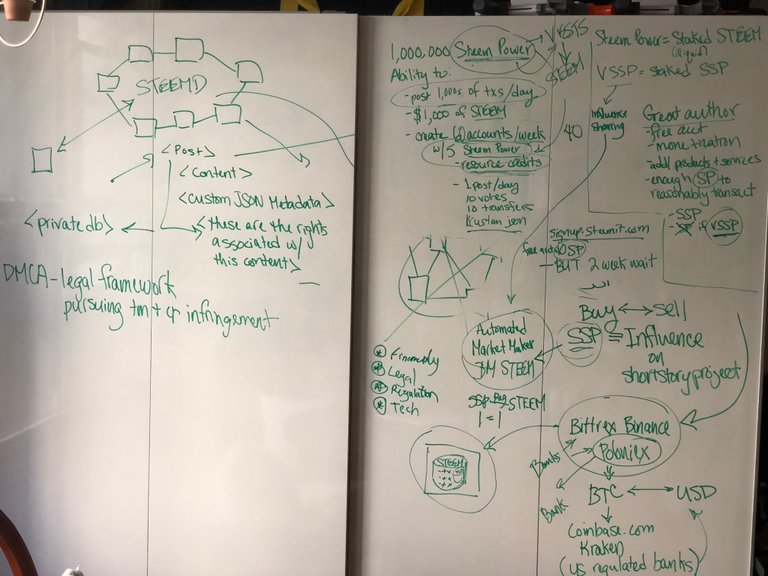 STEEMD
<Post>
<Content>
<Custom JSON Metadata>
<private db>
<these are the rights
associated w/
this content>
DMCA - legal framework
pursuing tm + cr infringement
1,000,000 Steem Power
VESTS
STEEM
Ability to:
- post 1,000s of txs/day
- $1,000 of STEEM
- create accounts/week
w/5 Steem Power
- resource credits
- 1 post/day
10 votes
10 transfers
Custom json
40
Steem Power = Staked STEEM
(liquid)
VSSP = staked SSP
Influence
sharing
Great author
- free acct
- monetization
- add'l products + services
- enough SP to
reasonably transact
- SSP
VSSP
signup.steemit.com
free acct
- BUT 2 week wait
Buy ↔ Sell
SSP = Influence
on
shortstory project
Automated
Market Maker
BM STEEM
* Financially
* Legal
* Regulation
* Tech
SSP Peg STEEM
1 = 1
STEEM
Bittrex Binance
Poloniex
Banks
Bank
BTC ↔ USD
Coinbase.com
Kraken
(US regulated banks)